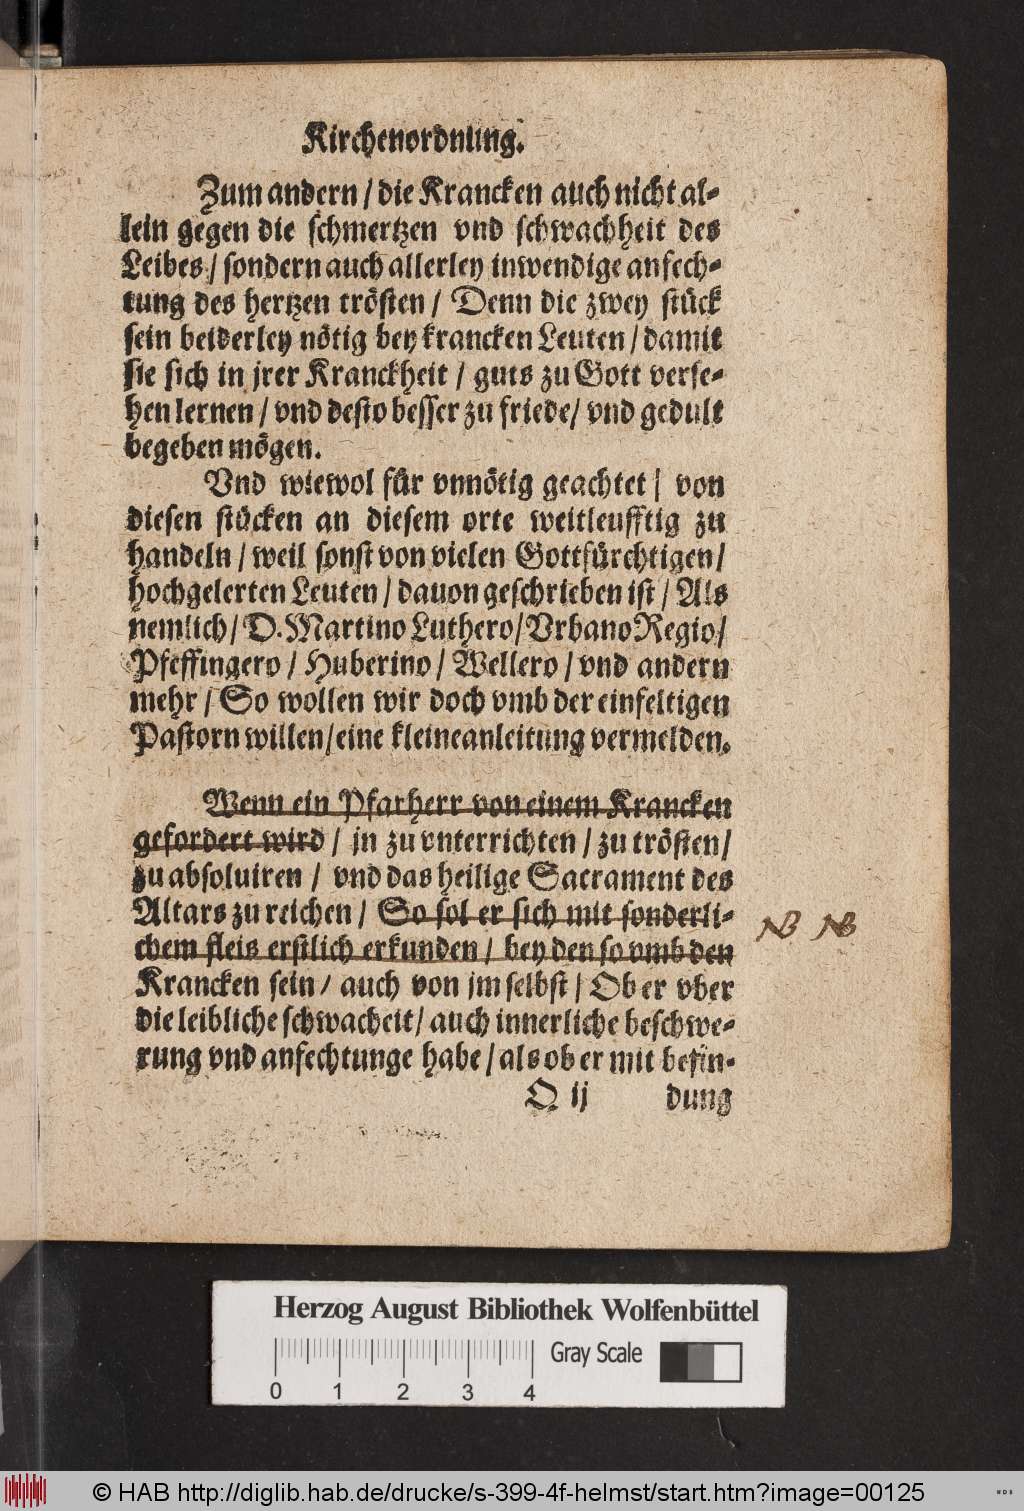 Kirchenordnung.
Zum andern / die Krancken auch nicht al⸗
lein gegen die schmertzen vnd schwachheit des
Leibes / sondern auch allerley inwendige anfech⸗
tung des hertzen trösten / Denn die zwey stück
sein beiderley nötig bey krancken Leuten / damit
sie sich in jrer Kranckheit / guts zu Gott verse⸗
hen lernen / vnd desto besser zu friede / vnd gedult
begeben mögen.
Vnd wiewol für vnnötig geachtet / von
diesen stücken an diesem orte weitleufftig zu
handeln / weil sonst von vielen Gottfürchtigen /
hochgelerten Leuten / dauon geschrieben ist / Als
nemlich / D. Martino Luthero / Vrbano Regio /
Pfeffingero / Huberino / Wellero / vnd andern
mehr / So wollen wir doch vmb der einfeltigen
Pastorn willen / eine kleine anleitung vermelden.
Wenn ein Pfarherr von einem Krancken
gefordert wird / jn zu vnterrichten / zu trösten /
zu absoluiren / vnd das heilige Sacrament des
Altars zu reichen / So sol er sich mit sonderli⸗
chem fleis erstlich erkunden / bey den so vmb den
NB NB
Krancken sein / auch von jm selbst / Ob er vber
die leibliche schwacheit / auch innerliche beschwe⸗
rung vnd anfechtunge habe / als ob er mit befin⸗
Q ij dung
Herzog August Bibliothek Wolfenbüttel
Gray Scale
0 1 2 3 4
© HAB http://diglib.hab.de/drucke/s-399-4f-helmst/start.htm?image=00125